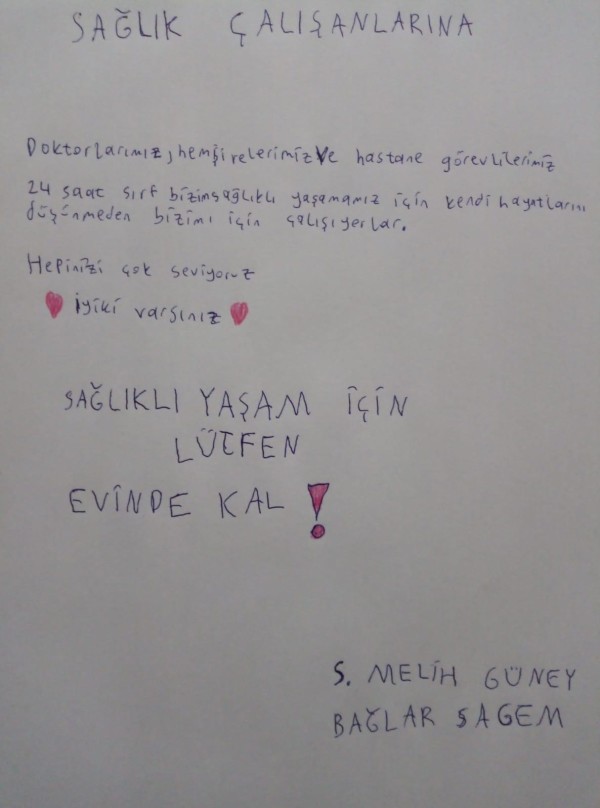 SAĞLIK ÇALIŞANLARINA
Doktorlarımız, hemşirelerimiz ve hastane görevlilerimiz
24 saat sırf bizim sağlıklı yaşamamız için kendi hayatlarını
düşünmeden bizimi için çalışıyerlar.
Hepinizi çok seviyoruz
İyiki varsınız
SAĞLIKLI YAŞAM İÇİN
LÜTFEN
EVİNDE KAL !
S. MELİH GÜNEY
BAĞLAR ŞAGEM